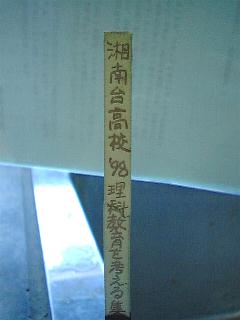 湘南台高校'98理科教育を考える集